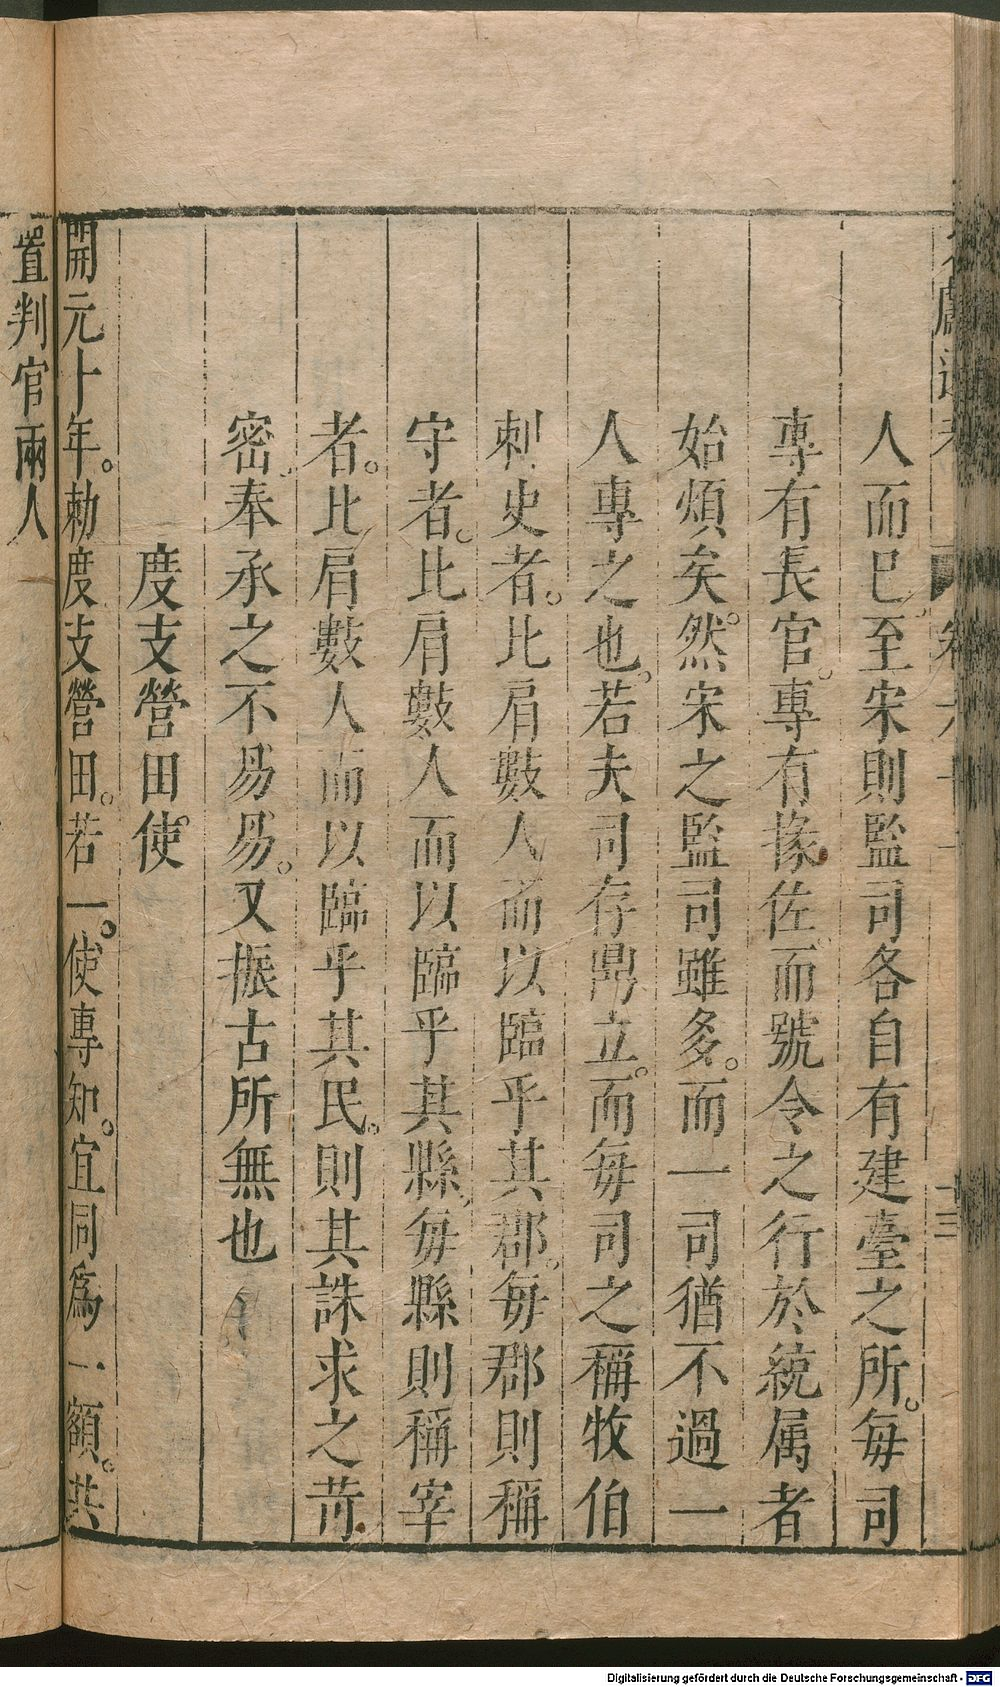 人而已至宋則監司各自有建臺之所。每司
專有長官。專有掾佐、而號令之行於統属者
始煩矣。然宋之監司雖多。而一司猶不過一
人專之也。若夫司存鼎立。而每司之稱牧伯
刺史者。比肩數人而以臨乎其郡。每郡則稱
守者。比肩數人而以臨乎其縣、每縣則稱宰
者。比肩數人而以臨乎其民。則其誅求之苛
密、奉承之不易易。又振古所無也
度支營田使
開元十年。勅度支營田。若一。使專知。宜同爲一額。共
置判官兩人
Digitalisierung gefördert durch die Deutsche Forschungsgemeinschaft - DFG